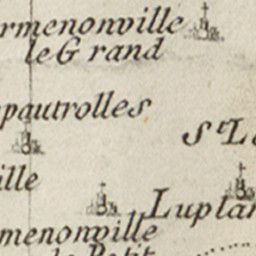 rmenonville
le Grand
pautrolles
St. L
ille
Luplan
menonville
le Petit